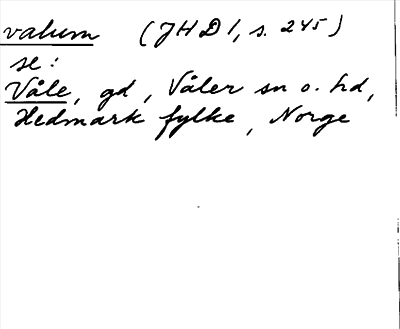 valum (JHD1, s. 245)
se:
Våle, gd, Våler sn o. hd,
Hedmark fylke, Norge